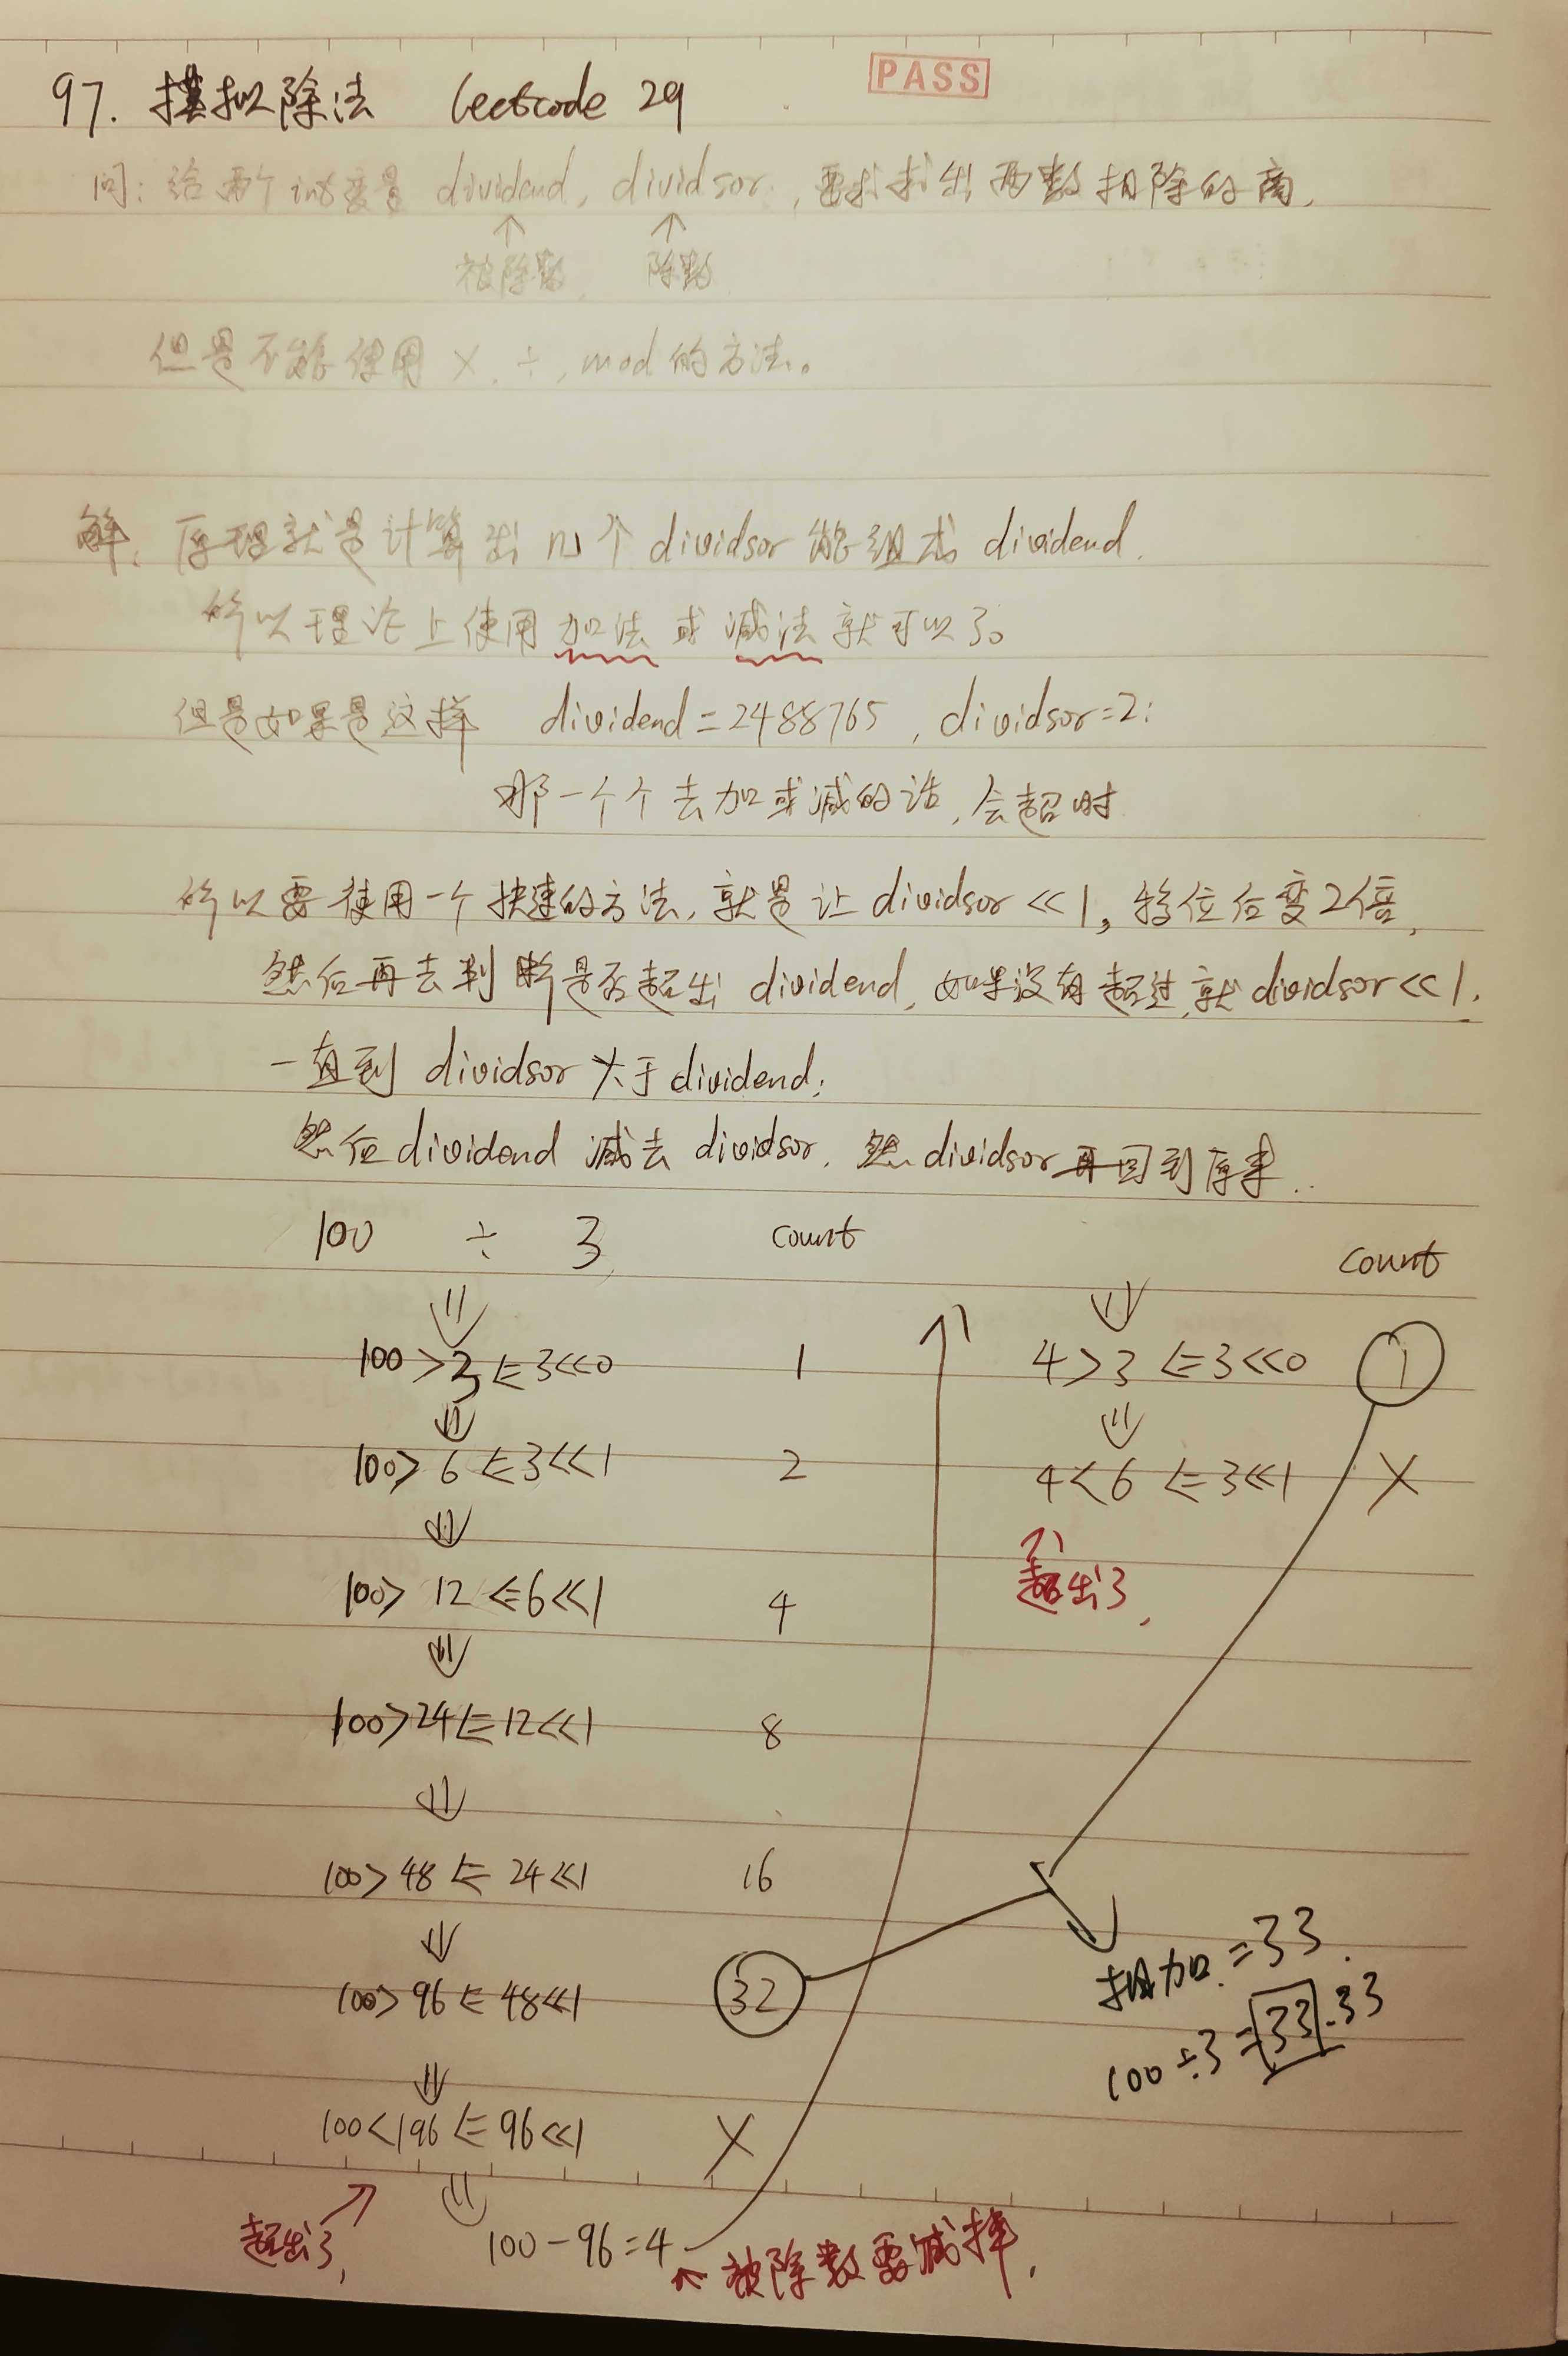 97. 模拟除法 leetcode 29
PASS
问: 给两个int变量 dividend, dividsor, 要求求出两数相除的商,
↑ ↑
被除数, 除数
但是不能使用 ×, ÷, mod 的方法。
解: 原理就是计算出 几个 dividsor 能组成 dividend.
所以理论上使用加法或减法就可以了。
但是如果是这样 dividend=2488765, dividsor=2;
那一个个去加或减的话, 会超时
所以要使用一个快速的方法, 就是让dividsor<<1, 移位后变2倍,
然后再去判断是否超出 dividend, 如果没有超过, 就dividsor<<1.
一直到 dividsor 大于dividend;
然后dividend 减去 dividsor, 然 dividsor再回到原来..
100 ÷ 3 count
100>3 ⇐ 3<<0 1
100>6 ⇐ 3<<1 2
100>12 ⇐ 6<<1 4
100>24 ⇐ 12<<1 8
100>48 ⇐ 24<<1 16
100>96 ⇐ 48<<1 32
100<196 ⇐ 96<<1 X
超出了,
100-96=4 ← 被除数要减掉,
count
4>3 ⇐ 3<<0 1
4<6 ⇐ 3<<1 X
超出了,
相加=33.
100÷3=33.33